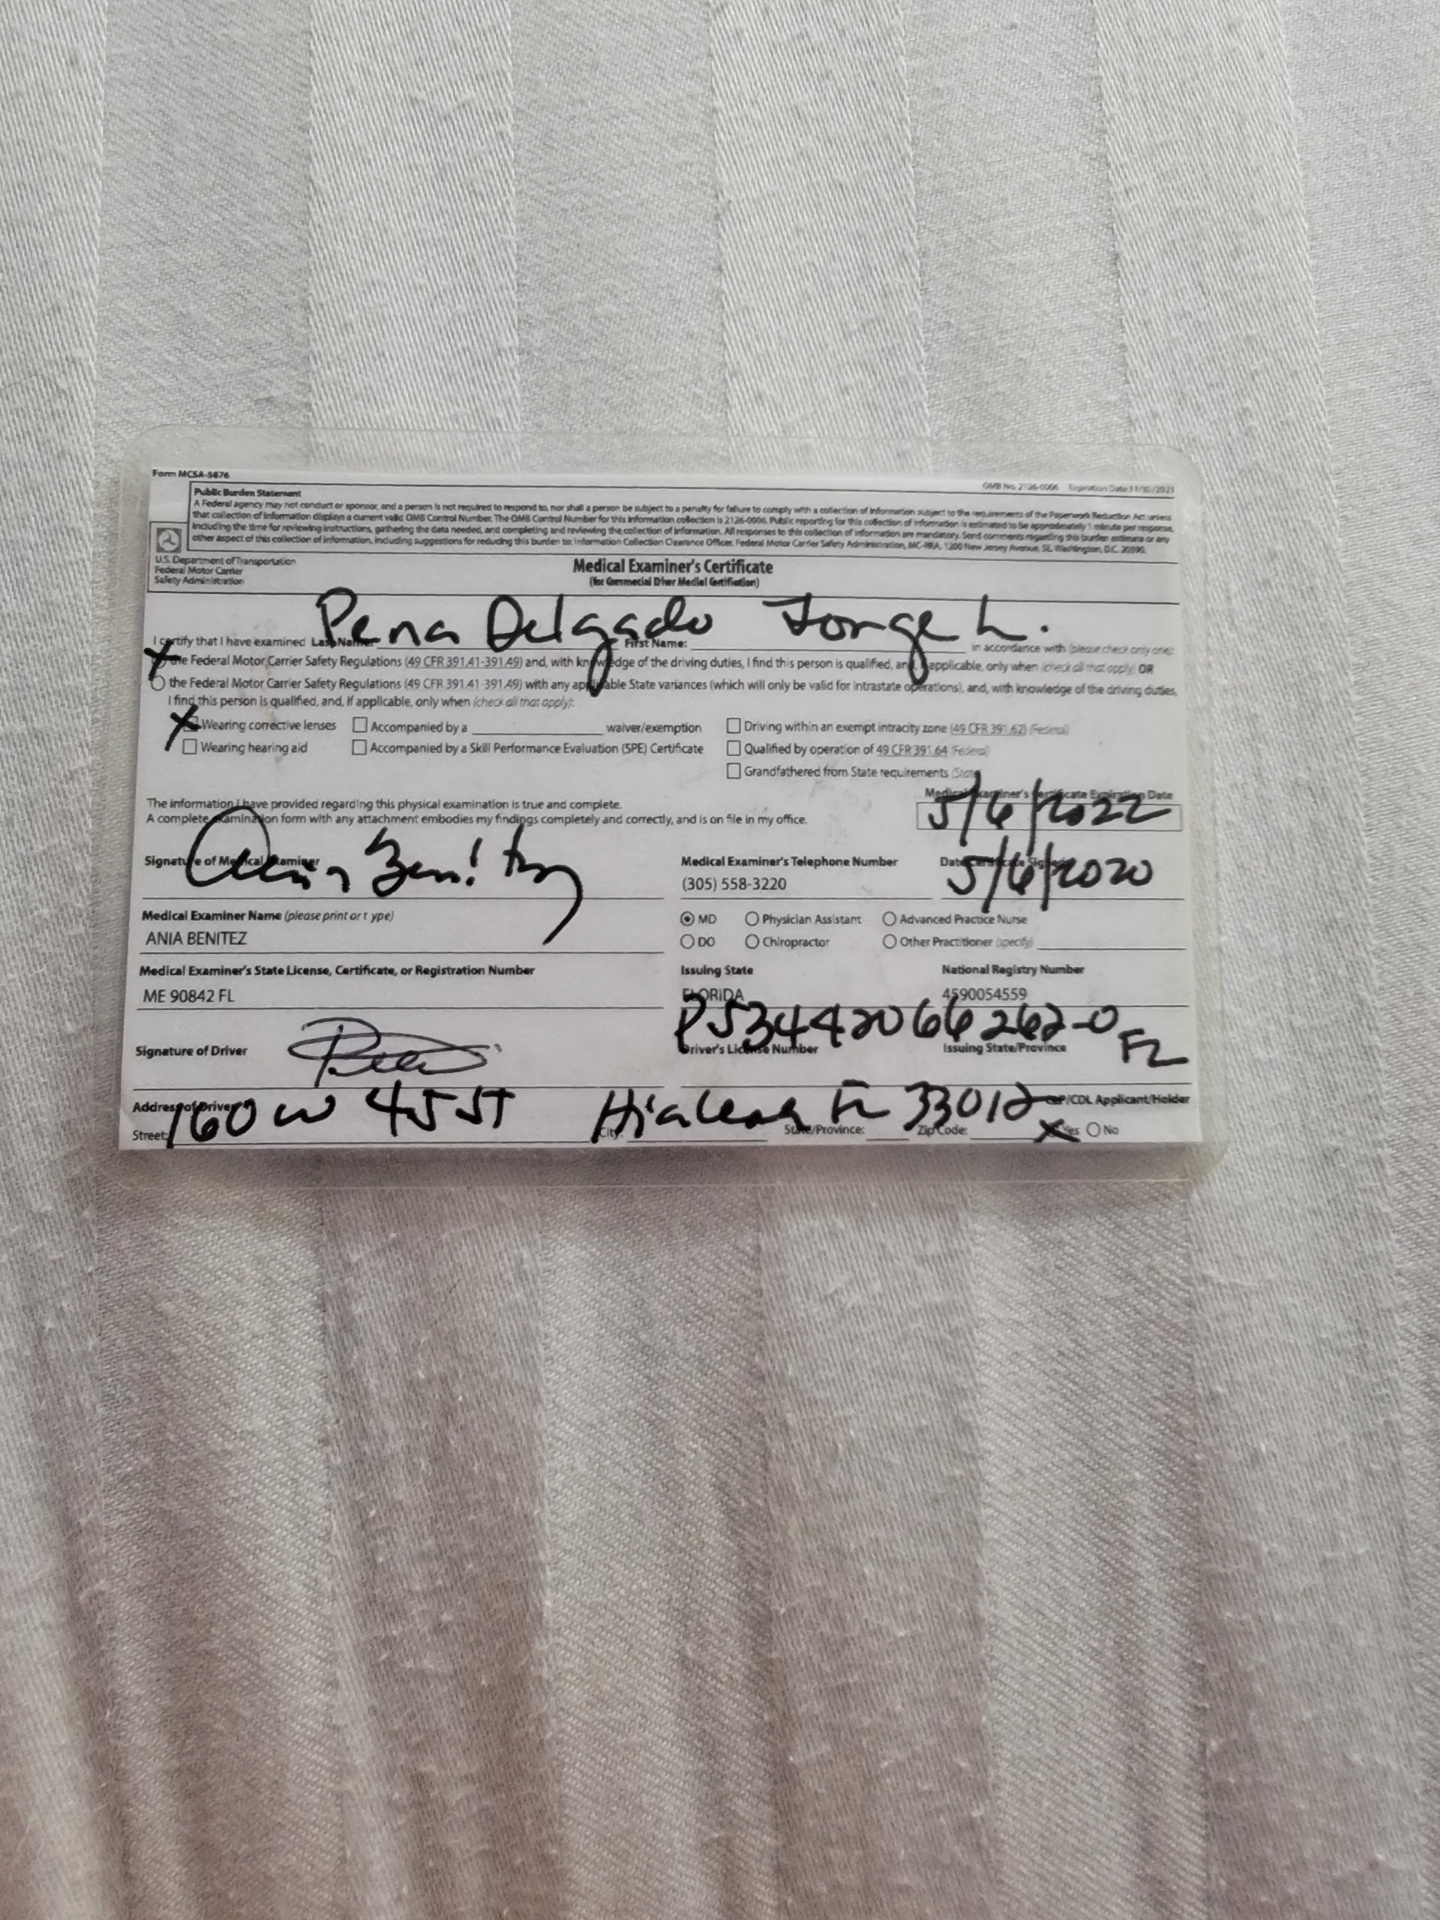 Form MCSA-5876
OMB No. 2126-0006 Expiration Date: 11/30/2021
Public Burden Statement
A Federal agency may not conduct or sponsor, and a person is not required to respond to, nor shall a person be subject to a penalty for failure to comply with a collection of information subject to the requirements of the Paperwork Reduction Act unless
that collection of information displays a current valid OMB Control Number. The OMB Control Number for this information collection is 2126-0006. Public reporting for this collection of information is estimated to be approximately 1 minute per response,
including the time for reviewing instructions, gathering the data needed, and completing and reviewing the collection of information. All responses to this collection of information are mandatory. Send comments regarding this burden estimate or any
other aspect of this collection of information, including suggestions for reducing this burden to: Information Collection Clearance Officer, Federal Motor Carrier Safety Administration, MC-RRA, 1200 New Jersey Avenue, SE, Washington, D.C. 20590.
U.S. Department of Transportation
Federal Motor Carrier
Safety Administration
Medical Examiner's Certificate
(for Commercial Diver Medial Certification)
Pena Delgado Jorge L.
I certify that I have examined Last Name: First Name: in accordance with (please check only one):
the Federal Motor Carrier Safety Regulations (49 CFR 391.41-391.49) and, with knowledge of the driving duties, I find this person is qualified, and, if applicable, only when (check all that apply) OR
the Federal Motor Carrier Safety Regulations (49 CFR 391.41-391.49) with any applicable State variances (which will only be valid for intrastate operations), and, with knowledge of the driving duties,
I find this person is qualified, and, if applicable, only when (check all that apply):
Wearing corrective lenses Accompanied by a waiver/exemption Driving within an exempt intracity zone (49 CFR 391.62) (Federal)
Wearing hearing aid Accompanied by a Skill Performance Evaluation (SPE) Certificate Qualified by operation of 49 CFR 391.64 (Federal)
Grandfathered from State requirements (State)
The information I have provided regarding this physical examination is true and complete.
A complete examination form with any attachment embodies my findings completely and correctly, and is on file in my office.
Medical Examiner's Certificate Expiration Date
5/6/2022
Signature of Medical Examiner
Ania Benitez
Medical Examiner's Telephone Number
(305) 558-3220
Date Certificate Signed
5/6/2020
Medical Examiner Name (please print or t ype)
ANIA BENITEZ
MD Physician Assistant Advanced Practice Nurse
DO Chiropractor Other Practitioner (specify)
Medical Examiner's State License, Certificate, or Registration Number
ME 90842 FL
Issuing State
FLORIDA
National Registry Number
4590054559
Signature of Driver
P53442066262-0 FL
Driver's License Number Issuing State/Province
Address of Driver
160 W 45 ST Hialeah FL 33012
Street: City: State/Province: Zip Code:
CLP/CDL Applicant/Holder
Yes No